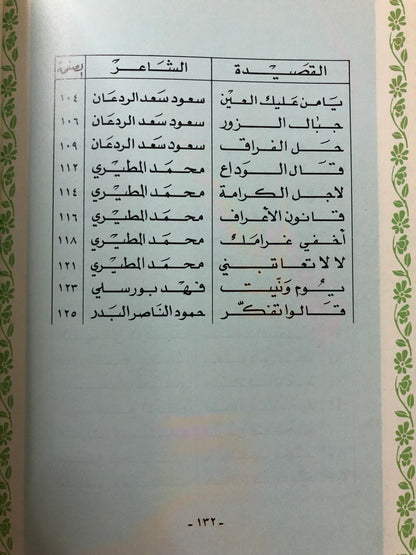 القصيدة الشاعر الصفحة
يا من عليك العين سعود سعد الردعان ١٠٤
حبال الزور سعود سعد الردعان ١٠٦
حل الفراق سعود سعد الردعان ١٠٩
قال الوداع محمد المطيري ١١٢
لاجل الكرامة محمد المطيري ١١٤
قانون الأعراف محمد المطيري ١١٦
أخفي غرامك محمد المطيري ١١٨
لا لا تعاتبني محمد المطيري ١٢١
يوم ونيت فهد بورسلي ١٢٣
قالوا تفكر حمود الناصر البدر ١٢٥
- ١٣٢ -